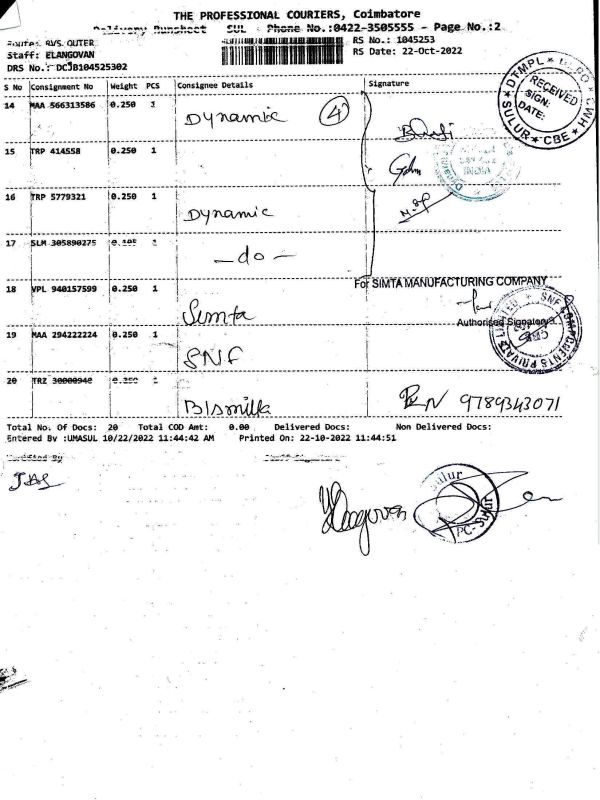 THE PROFESSIONAL COURIERS, Coimbatore
Delivery Runsheet SUL - Phone No.:0422-3505555 - Page No.:2
Route: RVS OUTER
RS No.: 1045253
Staff: ELANGOVAN
RS Date: 22-Oct-2022
DRS No.: DCJB104525302
S No Consignment No Weight PCS Consignee Details Signature
14 MAA 566313586 0.250 1 Dynamic 4
15 TRP 414558 0.250 1
16 TRP 5779321 0.250 1 Dynamic
17 SLM 305890275 1 - do -
18 VPL 940157599 0.250 1 Simta
For SIMTA MANUFACTURING COMPANY
Authorised Signatory
19 MAA 294222224 0.250 1 SNF
20 TRZ 1 Bismilla 9789343071
Total No. Of Docs: 20 Total COD Amt: 0.00 Delivered Docs: Non Delivered Docs:
Entered By :UMASUL 10/22/2022 11:44:42 AM Printed On: 22-10-2022 11:44:51
Elangovan
DTMPL
RECEIVED
SIGN:
DATE:
SULUR CBE
INDIA
SNF COMPONENTS PRIVATE LIMITED
CBE
Sulur
PC-Sulur